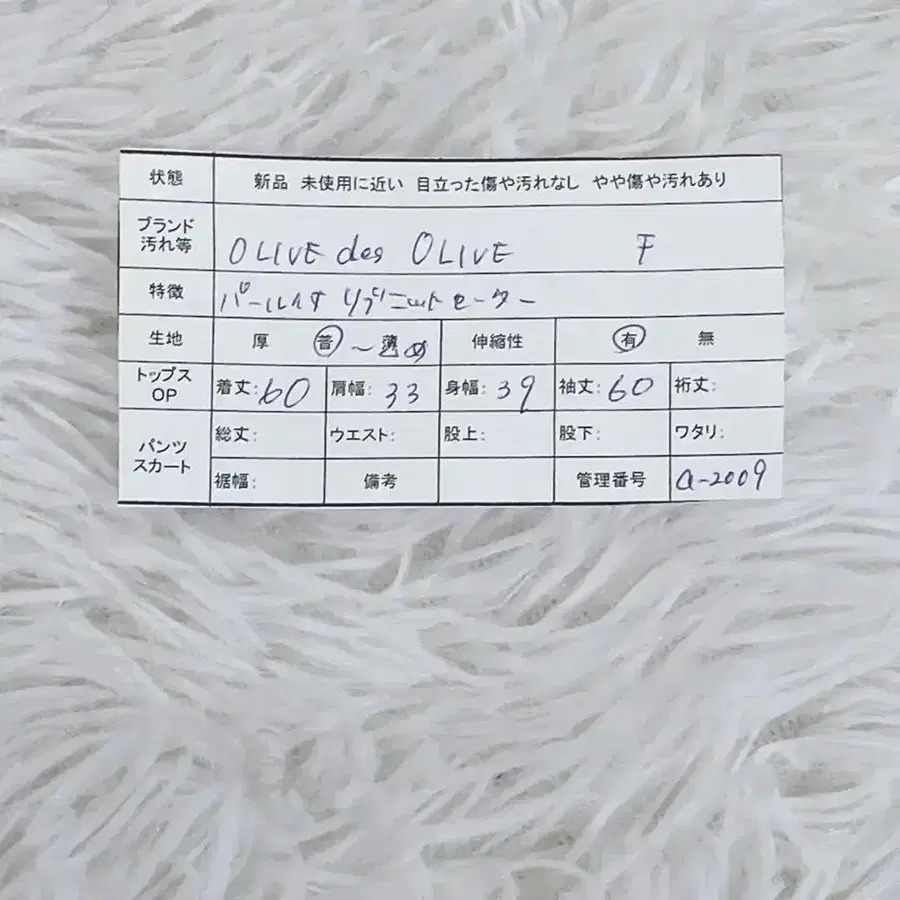 状態 新品 未使用に近い 目立った傷や汚れなし やや傷や汚れあり
ブランド
汚れ等 OLIVE des OLIVE F
特徴 パール付 リブニットセーター
生地 厚 普〜薄め 伸縮性 有 無
トップス
OP 着丈:60 肩幅:33 身幅:39 袖丈:60 裄丈:
パンツ
スカート 総丈: ウエスト: 股上: 股下: ワタリ:
裾幅: 備考 管理番号 a-2009